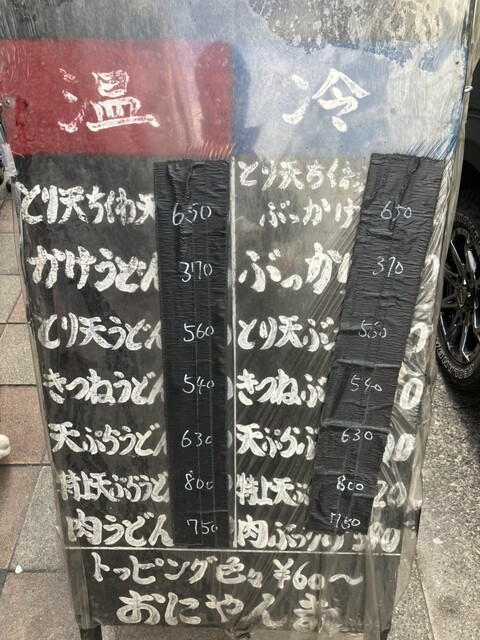 温
とり天ちくわ天 650
かけうどん 370
とり天うどん 560
きつねうどん 540
天ぷらうどん 630
特上天ぷらうど 800
肉うどん 750
冷
とり天ちくわ
ぶっかけ 650
ぶっか 370
とり天ぶ 560
きつねぶ 540
天ぷらぶ 630
特上天ぷ 800
肉ぶっかけ 750
トッピング色々¥60〜
おにやんま